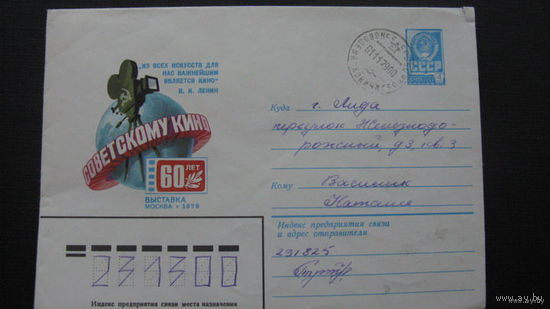 „ИЗ ВСЕХ ИСКУССТВ ДЛЯ
НАС ВАЖНЕЙШИМ
ЯВЛЯЕТСЯ КИНО"
В. И. ЛЕНИН
СОВЕТСКОМУ КИНО
60 ЛЕТ
ВЫСТАВКА
МОСКВА • 1979
СССР
Куда г. Лида
переулок Железнодо-
рожный, д 3, кв. 3
Кому
Наталия
Индекс предприятия связи
и адрес отправителя
231825
231300
Индекс предприятия связи места назначения
www.ay.by